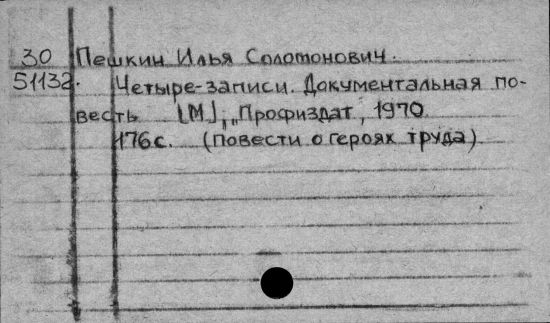 30 Пешкин Илья Соломонович.
51132. Четыре записи. Документальная по-
весть [М], „Профиздат", 1970
176 с. (Повести о героях труда)